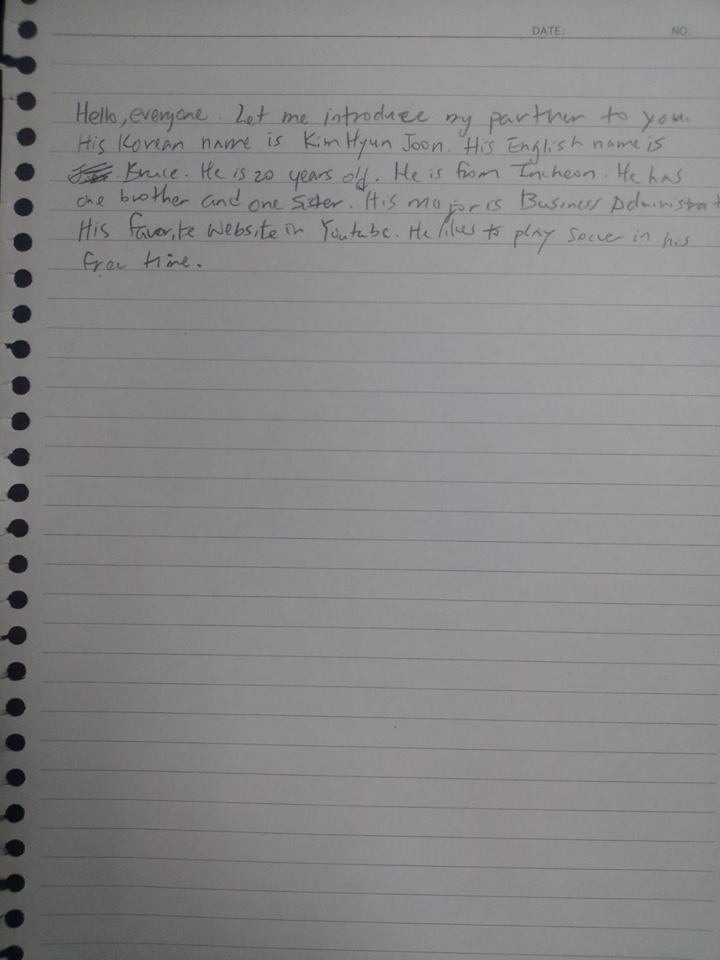 DATE: NO:
Hello, everyone. Let me introduce my partner to you.
His Korean name is Kim Hyun Joon. His English name is
Bruce. He is 20 years old. He is from Incheon. He has
one brother and one sister. His major is Business Administrat
His favorite website is Youtube. He likes to play soccer in his
free time.